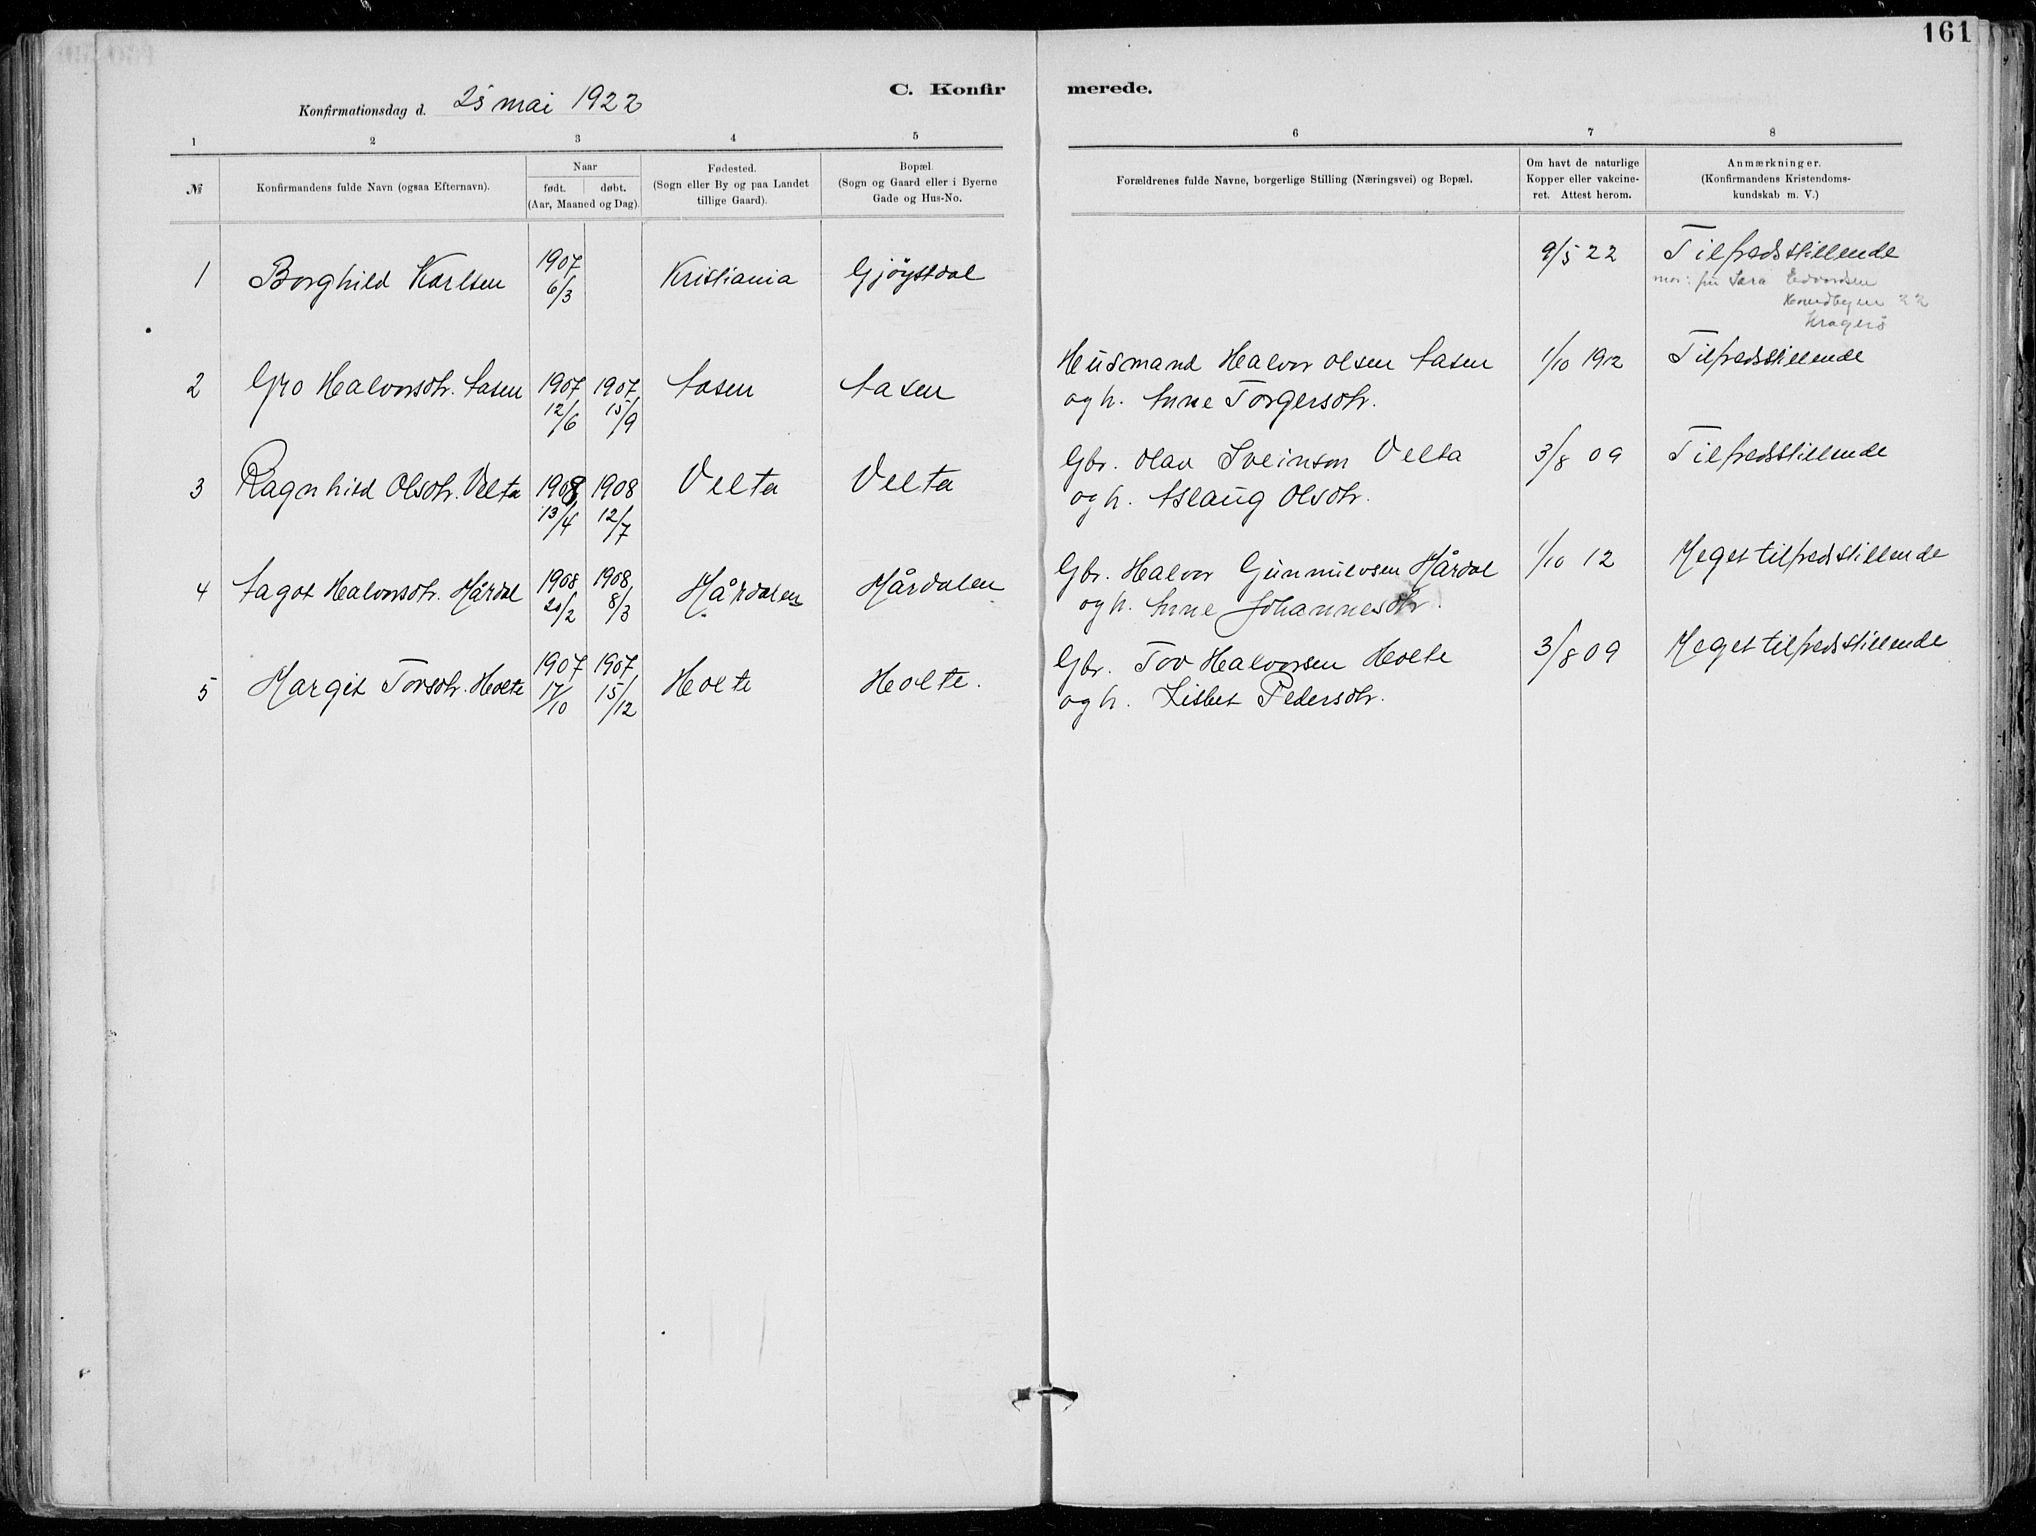 161
C. Konfirmerede.
Konfirmationsdag d. 25 mai 1922
1 2 3 4 5 6 7 8
№
Konfirmandens fulde Navn (ogsaa Efternavn).
Naar
født. døbt.
(Aar, Maaned og Dag).
Fødested.
(Sogn eller By og paa Landet
tillige Gaard).
Bopæl.
(Sogn og Gaard eller i Byerne
Gade og Hus-No.
Forældrenes fulde Navne, borgerlige Stilling (Næringsvei) og Bopæl.
Om havt de naturlige
Kopper eller vakcine-
ret. Attest herom.
Anmærkninger.
(Konfirmandens Kristendoms-
kundskab m. V.)
1 Borghild Karlsen 1907 6/3 Kristiania Gjöystdal 9/5 22 Tilfredsstillende
mor: fru Sara Edvardsen
22
Kragerö
2 Gro Halvorsdtr. Aasen 1907 12/6 1907 15/9 Aasen Aasen Husmand Halvor Olsen Aasen 1/10 1912 Tilfredsstillende
og h. Anne Torgersdtr.
3 Ragnhild Olsdtr. Velta 1908 13/4 1908 12/7 Velta Velta Gbr. Olav Sveinson Velta 3/8 09 Tilfredsstillende
og h. Aslaug Olsdtr.
4 Aagot Halvorsdtr. Hårdal 1908 20/2 1908 8/3 Hårdalen Hårdalen Gbr. Halvor Gunnulvsen Hårdal 1/10 12 Meget tilfredsstillende
og h. Anne Johannesdtr.
5 Margit Tovsdtr. Holte 1907 17/10 1907 15/12 Holte Holte. Gbr. Tov Halvorsen Holte 3/8 09 Meget tilfredsstillende
og h. Lisbet Pedersdtr.